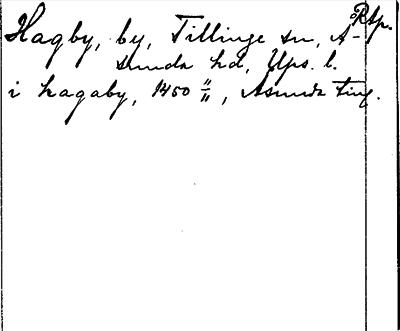 Rtp.
Hagby, by, Tillinge sn, Å-
sunda hd, Ups. l.
i hagaby, 1450 11/11, Asunda ting.